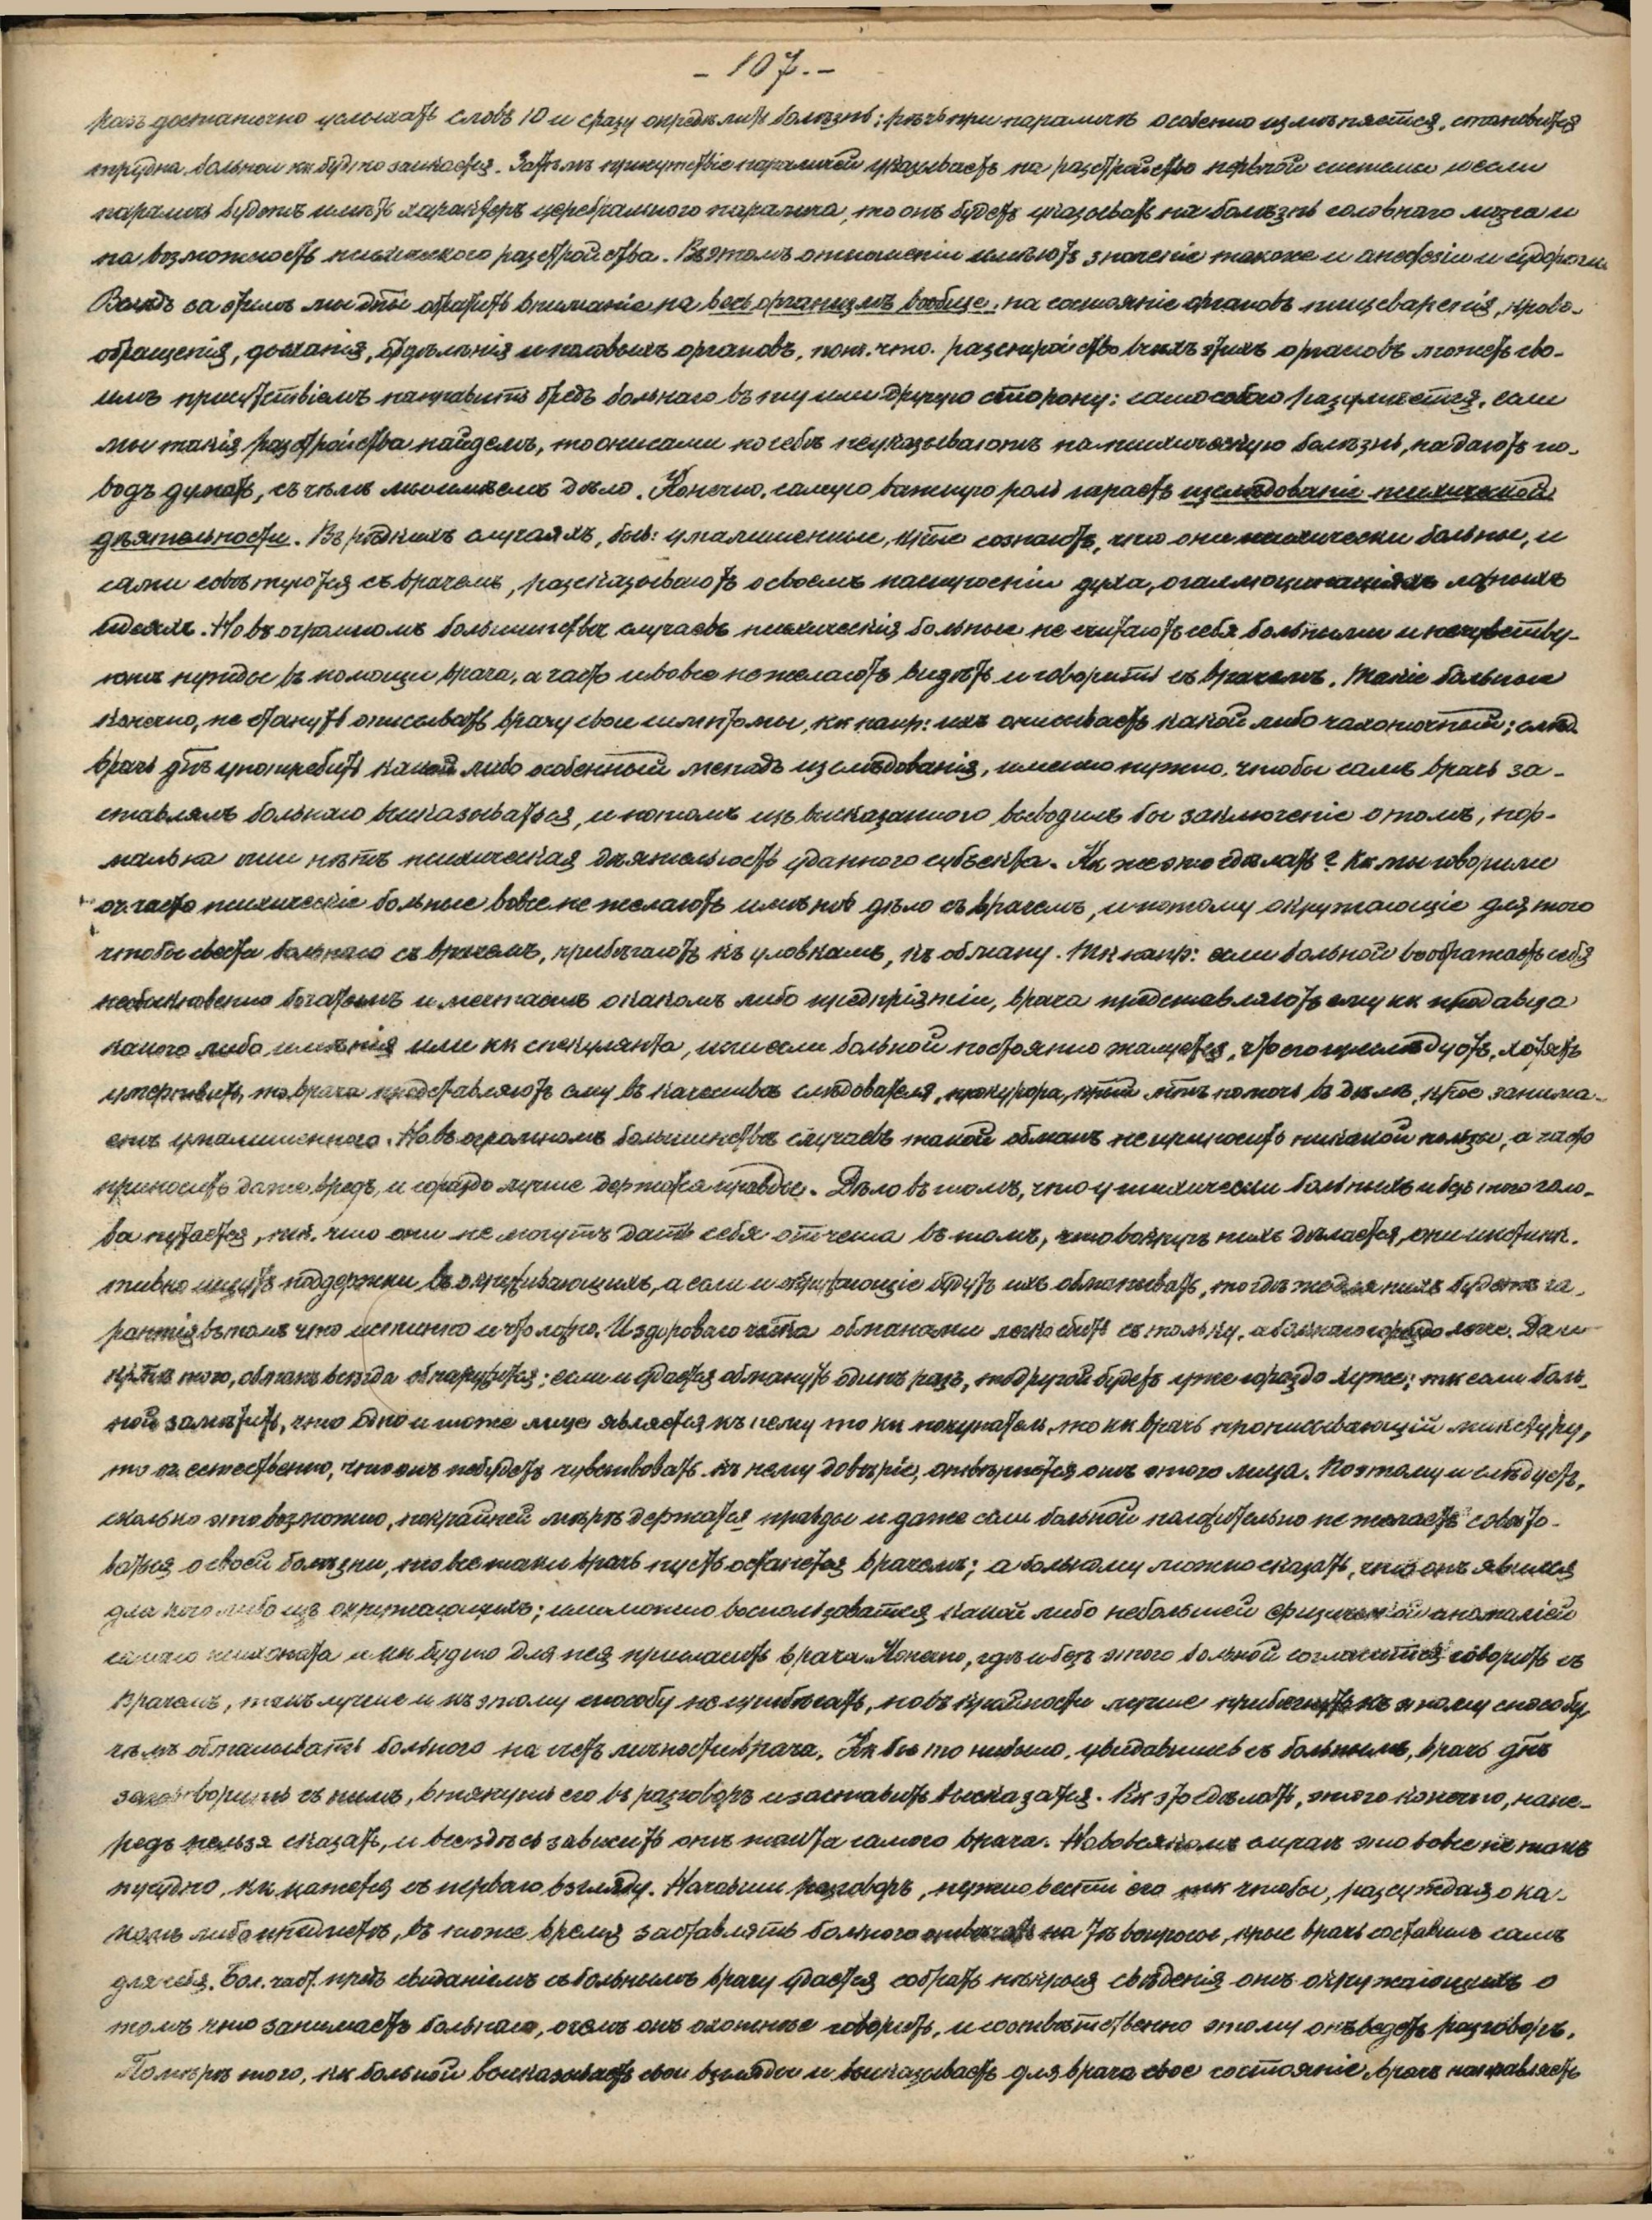 - 107. -
разъ достаточно услыхать словъ 10 и сразу опредѣлить болѣзнь; рѣчь при параличѣ особенно измѣняется, становится
трудна, больной кк будто заикается. Затѣмъ присутствіе параличей указываетъ на разстройство нервной системы и если
параличъ будетъ имѣть характеръ церебральнаго паралича, то онъ будетъ указывать на болѣзнь головнаго мозга и
на возможность психическаго разстройства. Въ этомъ отношеніи имѣютъ значеніе также и анестезіи и судороги.
Вслѣдъ за этимъ мы дны обратить вниманіе на весь организмъ вообще, на состояніе органовъ пищеваренія, крово-
обращенія, дыханія, отдѣленія и половыхъ органовъ, пот. что. разстройство всѣхъ этихъ органовъ можетъ сво-
имъ присутствіемъ направить бредъ больнаго въ ту или другую сторону: само собою разумѣется, если
мы такія разстройства найдемъ, то они сами по себѣ не указываютъ на психическую болѣзнь, но даютъ по-
водъ думать, съ чѣмъ мы имѣемъ дѣло. Конечно, самую важную роль играетъ изслѣдованіе психической
дѣятельности. Въ рѣдкихъ случаяхъ, быв: умалишенные, кртые сознаютъ, что они психически больны, и
сами совѣтуются съ врачемъ, разсказываютъ о своемъ настроеніи духа, о галлюцинаціяхъ ложныхъ
идеяхъ. Но въ огромномъ большинствѣ случаевъ психическія больные не считаютъ себя больными и не чувству-
ютъ нужды въ помощи врача, а часто и вовсе не желаютъ видѣть и говорить съ врачемъ. Такіе больные
конечно, не станутъ описывать врачу свои симптомы, кк напр: ихъ описываетъ какой либо чахоточный; слѣд.
врачъ днъ употребить какой либо особенный методъ изслѣдованія, именно нужно, чтобы самъ врачъ за-
ставлялъ больнаго высказываться, и потомъ изъ высказаннаго выводилъ бы заключеніе о томъ, нор-
мальна или нѣтъ психическая дѣятельность у даннаго субъекта. Кк же это сдѣлать? Кк мы говорили
оч. часто психическіе больные вовсе не желаютъ имѣть дѣло съ врачемъ, и потому окружающіе для того
чтобы свести больнаго съ врачемъ, прибѣгаютъ къ уловкамъ, къ обману. Тк напр: если больной воображаетъ себя
необыкновенно богатымъ и мечтаетъ о какомъ либо предпріятіи, врача представляютъ ему кк продавца
какого либо имѣнія или кк спекулянта, или если больной постоянно жалуется, что его преслѣдуютъ, хотятъ
умертвить, то врача представляютъ ему въ качествѣ слѣдователя, прокурора, кртый мтъ помочь въ дѣлѣ, кртое занима-
етъ умалишеннаго. Но въ огромномъ большинствѣ случаевъ такой обманъ не приноситъ никакой пользы, а часто
приноситъ даже вредъ, и гораздо лучше держаться правды. Дѣло въ томъ, что у психически больныхъ и безъ того голо-
ва путается, тк. что они не могутъ дать себѣ отчета въ томъ, что вокругъ нихъ дѣлается, они инстинк-
тивно ищутъ поддержки въ окруживающихъ, а если и окружающіе будутъ ихъ обманывать, то гдѣ же для нихъ будетъ га-
рантія въ томъ что истинно и что ложно. И здороваго члвка обманами легко сбить съ толку, а больнаго гораздо легче. Да и
крмѣ того, обманъ всегда обнаружится; если и удастся обмануть одинъ разъ, то другой будетъ уже гораздо хуже; тк если боль-
ной замѣтитъ, что одно и тоже лице является къ нему то кк покупатель, то кк врачъ прописывающій микстуру,
то оч. естественно, что онъ не будетъ чувствовать къ нему довѣріе, отвернется отъ этого лица. Поэтому и слѣдуетъ,
сколько это возможно, по крайней мѣрѣ держаться правды и даже если больной положительно не желаетъ совѣто-
ваться о своей болѣзни, то все таки врачъ пусть останется врачемъ; а больному можно сказать, что онъ явился
для кого либо изъ окружающихъ; или можно воспользоваться какой либо небольшой физической аномаліей
самаго психопата и кк будто для нея пригласить врача. Конечно, гдѣ и безъ этого больной соглашается говорить съ
врачемъ, тамъ лучше и къ этому способу не прибѣгать, но въ крайности лучше прибѣгнуть къ этому способу,
чѣмъ обманывать больного на счетъ личности врача. Кк бы то ни было, увидавшись съ больнымъ, врачъ днъ
заговорить съ нимъ, втянуть его въ разговоръ и заставить высказаться. Кк это сдѣлать, этого конечно, напе-
редъ нельзя сказать, и все здѣсь зависитъ отъ такта самого врача. Но во всякомъ случаѣ это вовсе не такъ
трудно, кк кажется съ перваго взгляду. Начавши разговоръ, нужно вести его тк чтобы, разсуждая о ка-
комъ либо предметѣ, въ тоже время заставлять больного отвѣчать на тѣ вопросы, крые врачъ составилъ самъ
для себя. Бол. част. предъ свиданіемъ съ больнымъ врачу удается собрать нѣкрыя свѣденія отъ окружающихъ о
томъ что занимаетъ больнаго, о чемъ онъ охотнѣе говоритъ, и соотвѣтственно этому онъ ведетъ разговоръ.
По мѣрѣ того, кк больной высказываетъ свои взгляды и высказываетъ для врача свое состояніе, врачъ направляетъ